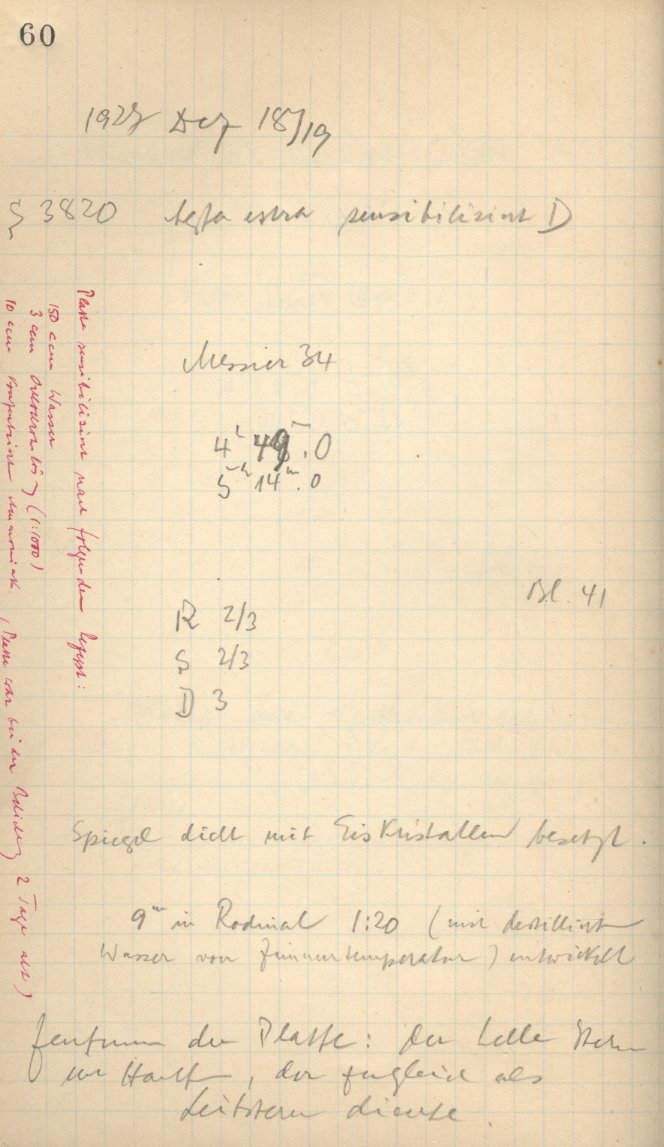 60
1927 Dez 18/19
S 3820 Agfa extra sensibilisiert D
Messier 34
4h 49m.0
5h 14m.0
Bl. 41
R 2/3
S 2/3
D 3
Spiegel dicht mit Eiskristallen besetzt.
9m in Rodinal 1:20 (mit destilliert
Wasser von Zimmertemperatur) entwickelt
Zentrum der Platte: Der helle Stern
im Hauf, der zugleich als
Leitstern diente.
Platte sensibilisiert nach folgendem Rezept:
150 ccm Wasser
3 ccm (1:1000)
10 ccm Ammoniak (Platte war bei der 2 Tage alt)